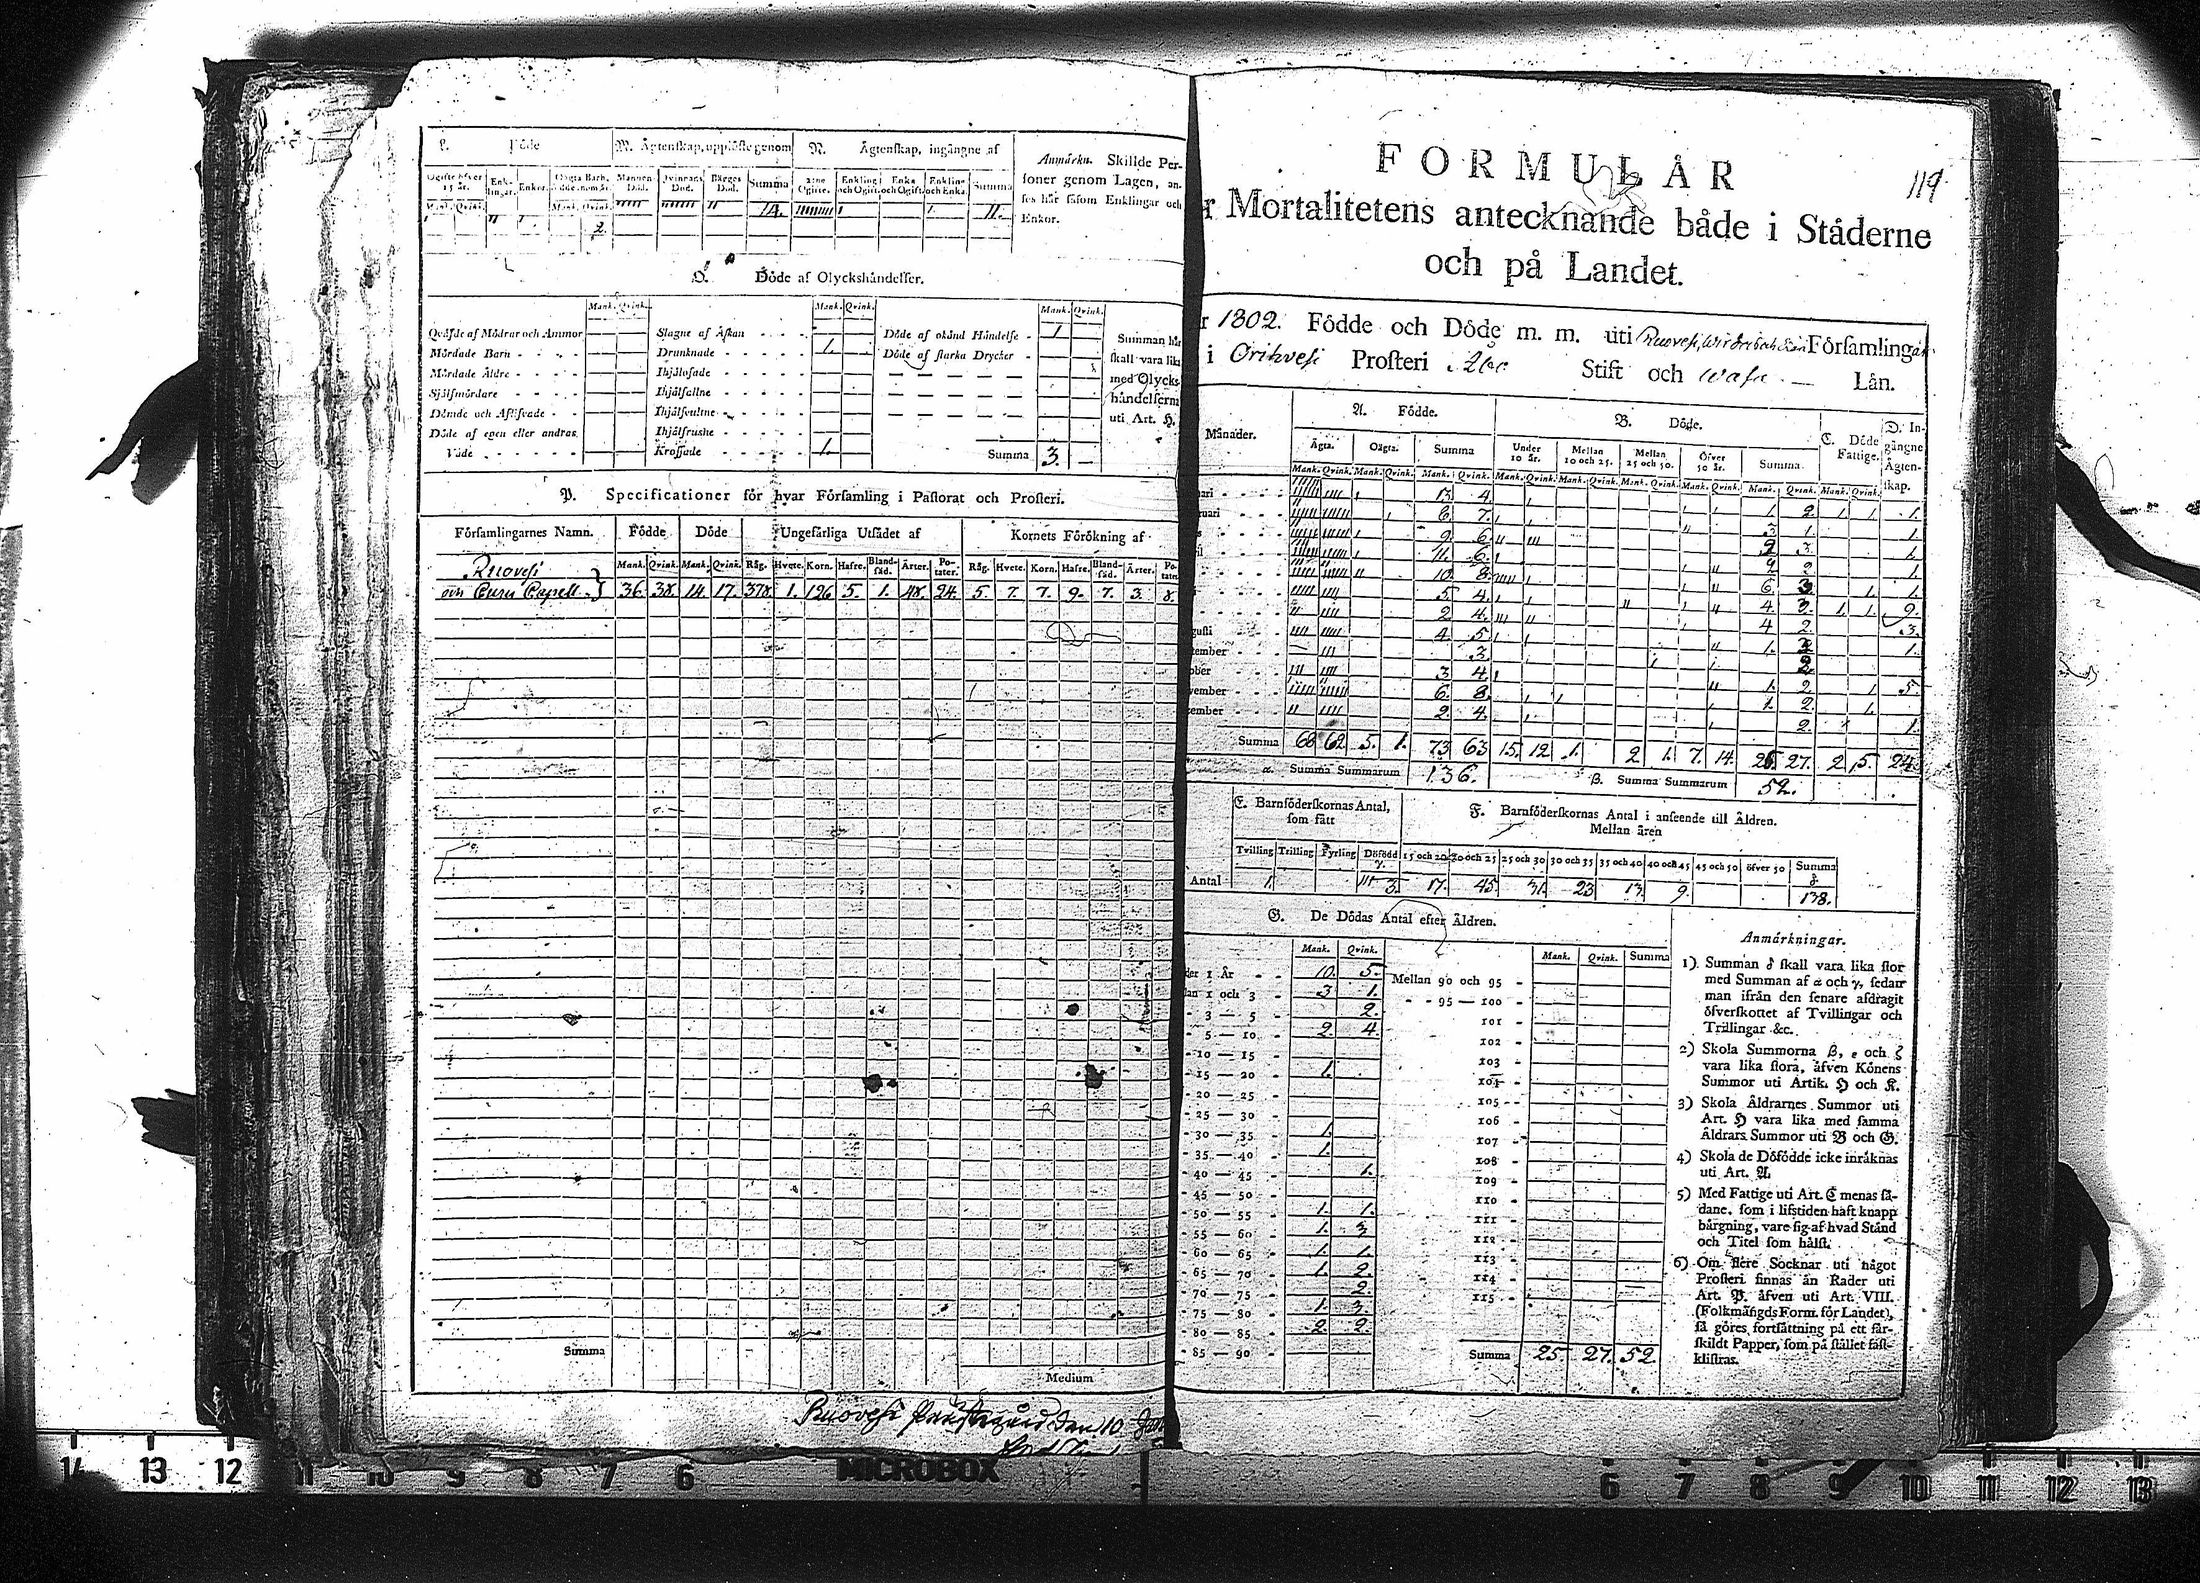 L. Döde M. Ägtenskap, upplöste genom N. Ägtenskap, ingångne af
Ogifte öfver 15 år. Enklingar. Enkor. Oägta Barn, Mannens Död. Qvinnans Död. Bägges Död. Summa 2:ne Ogifte. Enkling och Ogift. Enka och Ogift. Enkling och Enka. Summa
Mank. Qvink. Mank. Qvink.
14. 11.
2.
Anmärkn. Skillde Per-
soner genom Lagen, an-
ses här såsom Enklingar och
Enkor.
O. Döde af Olyckshändelser.
Mank. Qvink. Mank. Qvink. Mank. Qvink.
Qväfde af Mödrar och Ammor Slagne af Åskan Döde af okänd Händelse 1
Mördade Barn Drunknade 1. Döde af starka Drycker
Mördade Äldre Ihjälsofade
Sjelfmördare Ihjälfallne
Dömde och Aflifvade Ihjälsvultne
Döde af egen eller andras Ihjälfrusne
Våda Krossade 1. Summa 3.
Summan här
skall vara lika
med Olycks-
händelserna
uti Art. H.
P. Specificationer för hvar Församling i Pastorat och Prosteri.
Församlingarnes Namn. Födde Döde Ungefärliga Utsädet af Kornets Förökning af
Mank. Qvink. Mank. Qvink. Råg. Hvete. Korn. Hafre. Bland-säd. Ärter. Po-tater. Råg. Hvete. Korn. Hafre. Bland-säd. Ärter. Po-tater
Ruovesi
och Kuru Capell 36. 38. 14. 17. 378. 1. 126. 5. 1. 48. 24. 5. 7. 7. 9. 7. 3. 8.
Summa
Medium
Ruovesi Prästegård den 10
119.
FORMULÄR
Mortalitetens antecknande både i Städerne
och på Landet.
1802. Födde och Döde m. m. uti Ruovesi, Församlingar
i Orihvesi Prosteri Åbo Stift och Wasa Län.
Månader. A. Födde. B. Döde. C. Döde Fattige. D. In-gångne Ägten-skap.
Ägta. Oägta. Summa Under 10 år. Mellan 10 och 25. Mellan 25 och 50. Öfver 50 år. Summa
Mank. Qvink. Mank. Qvink. Mank. Qvink. Mank. Qvink. Mank. Qvink. Mank. Qvink. Mank. Qvink. Mank. Qvink. Mank. Qvink.
13. 4. 1. 2. 1. 1. 1.
6. 7. 3. 1. 1.
9. 6. 9. 3. 1.
11. 6. 2. 2. 1.
10. 8. 6. 3. 1. 1.
5. 4. 4. 3. 1. 1. 9.
2. 4. 4. 2. 3.
4. 5. 1. 1.
3. 2.
3. 4. 1. 2. 1. 5.
6. 8. 1. 2. 1.
2. 4. 2. 1.
Summa 68 62 5. 1. 73 63 15. 12. 1. 2 1. 7. 14. 25. 27. 2 5. 24.
α. Summa Summarum 136. β. Summa Summarum 52.
E. Barnföderskornas Antal, som fått
F. Barnföderskornas Antal i anseende till Åldren.
Mellan åren
Tvilling Trilling Fyrling Döfödd 15 och 20 20 och 25 25 och 30 30 och 35 35 och 40 40 och 45 45 och 50 öfver 50 Summa
Antal 1. 3. 17. 45. 31. 23 13. 9. 138.
G. De Dödas Antal efter Åldren.
Mank. Qvink. Mank. Qvink. Summa
1 År 10. 5. Mellan 90 och 95
1 och 3 3 1. 95 — 100
3 — 5 2. 101
5 — 10 2. 4. 102
10 — 15 103
15 — 20 1. 104
20 — 25 105
25 — 30 106
30 — 35 1. 107
35 — 40 1. 108
40 — 45 1. 109
45 — 50 110
50 — 55 1. 1. 111
55 — 60 1. 3. 112
60 — 65 1. 1. 113
65 — 70 1. 2. 114
70 — 75 2. 115
75 — 80 1. 3.
80 — 85 2. 2.
85 — 90 Summa 25. 27. 52.
Anmärkningar.
1) Summan δ skall vara lika stor
med Summan af α och γ, sedan
man ifrån den senare afdragit
öfverskottet af Tvillingar och
Trillingar &c.
2) Skola Summorna β, ε och ζ
vara lika stora, äfven Könens
Summor uti Artik. H och K.
3) Skola Åldrarnes Summor uti
Art. H vara lika med samma
Åldrars Summor uti B och G.
4) Skola de Döfödde icke inräknas
uti Art. A.
5) Med Fattige uti Art. C menas så-
dane, som i lifstiden haft knapp
bärgning, vare sig af hvad Stånd
och Titel som hälst.
6) Om flere Socknar uti något
Prosteri finnas än Rader uti
Art. P. äfven uti Art. VIII.
(Folkmängds Form. för Landet),
så göres fortsättning på ett sär-
skildt Papper, som på stället fäst-
klistras.
14 13 12 11 10 9 8 7 6 MICROBOX 6 7 8 9 10 11 12 13